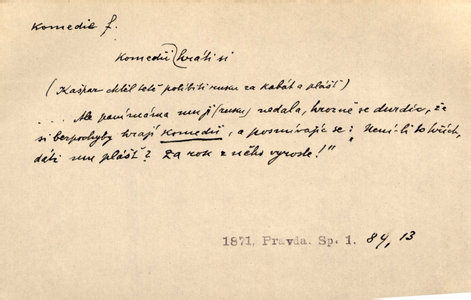 Komedie f.
Komedii hráti si
(Kašpar chtěl též políbiti ruku za kabát a plášť)
.... Ale panímáma mu jí (ruku) nedala, hrozně se durdíc, že
si bezpochyby hrají Komedii, a posmívajíc se: „Není-li to hřích,
dáti mu plášť? Za rok z něho vyroste!"
1871, Pravda. Sp. 1. 84, 13